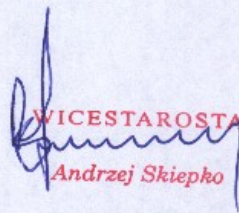 WICESTAROSTA
Andrzej Skiepko